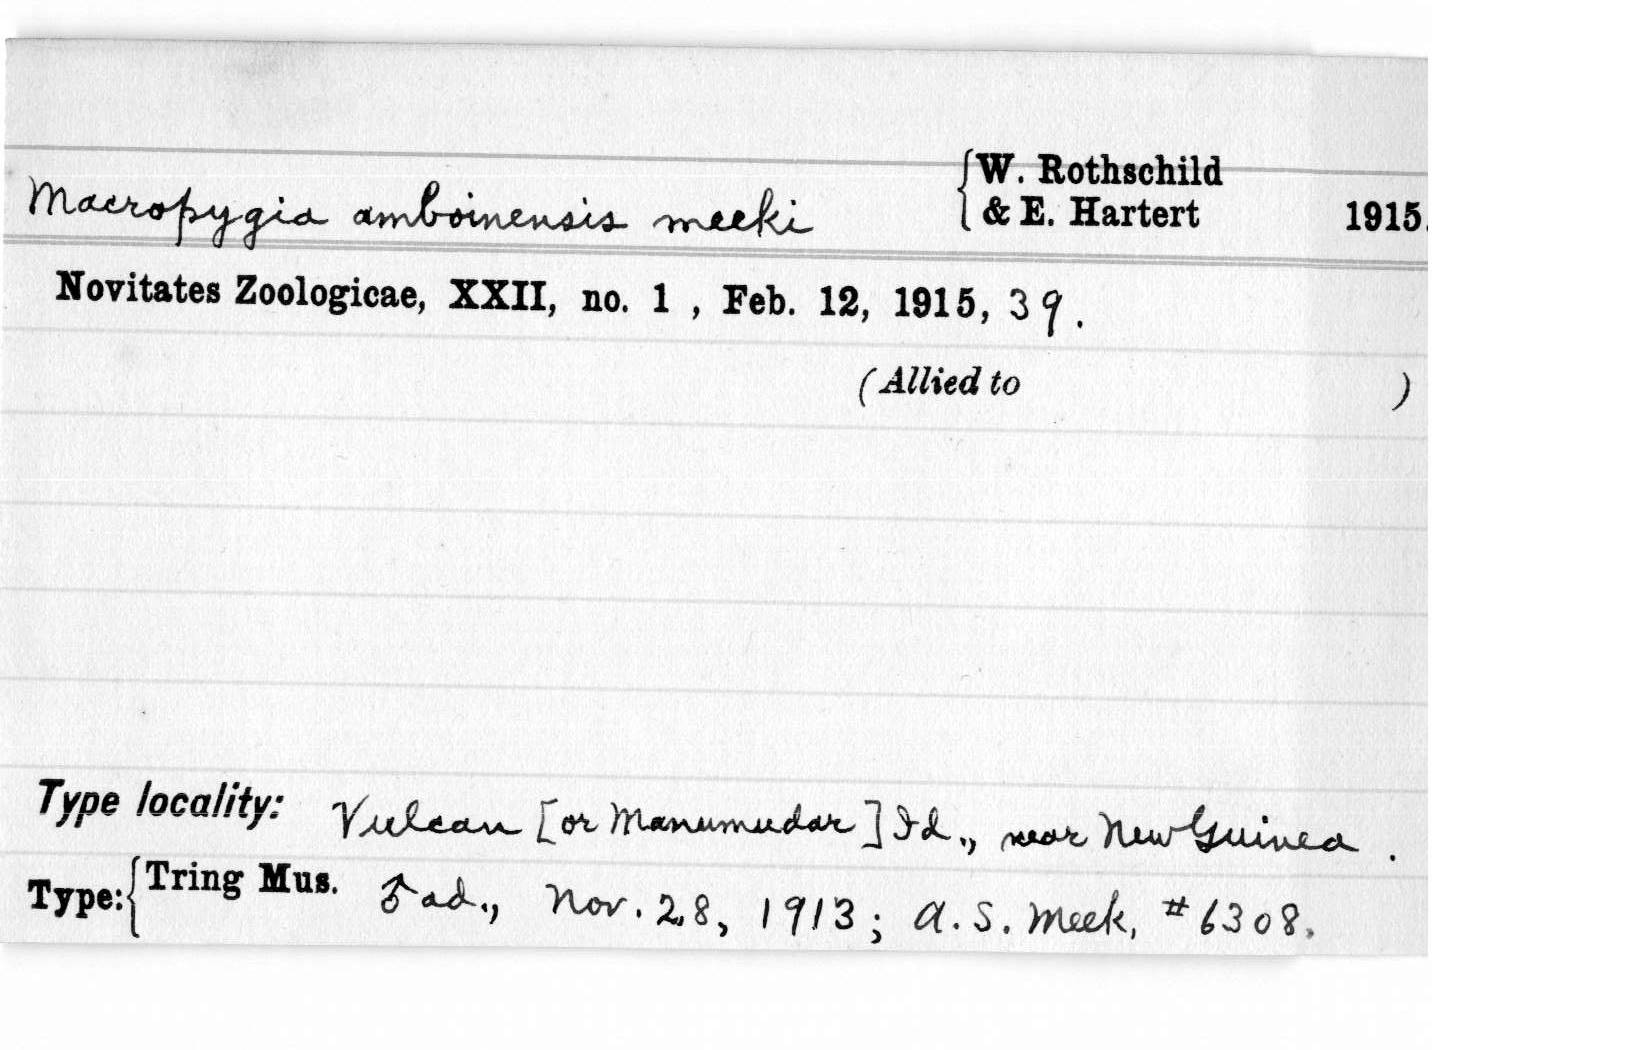 Macropygia amboinensis meeki {W. Rothschild & E. Hartert 1915.
Novitates Zoologicae, XXII, no. 1 , Feb. 12, 1915, 39.
(Allied to )
Type locality: Vulcan [or Manumudar] Id., near New Guinea .
Type: {Tring Mus. ♂ ad., Nov. 28, 1913; A. S. Meek, # 6308.